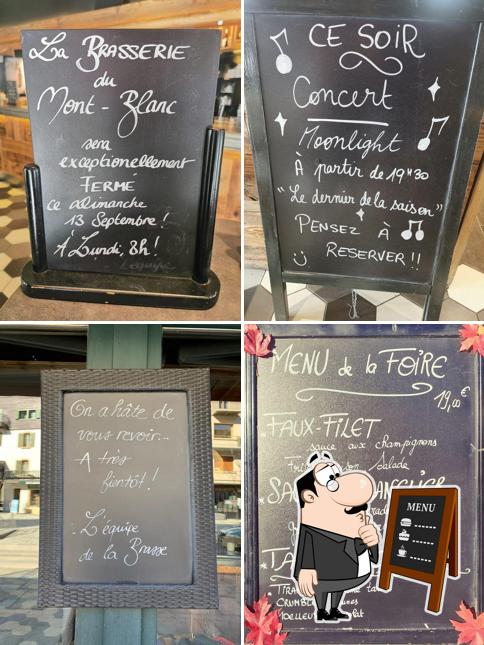 La BRASSERIE
du
Mont-Blanc
sera
exceptionellement
FERMÉ
ce dimanche
13 Septembre !
À Lundi, 8h !
L'équipe
CE SOIR
Concert
Moonlight
À partir de 19H30
"Le dernier de la saison"
PENSEZ À
RESERVER !!
On a hâte de
vous revoir...
A très
bientôt !
L'équipe
de la Brasse
MENU de la FOIRE
19,00€
FAUX-FILET
sauce aux champignons
Salade
MENU